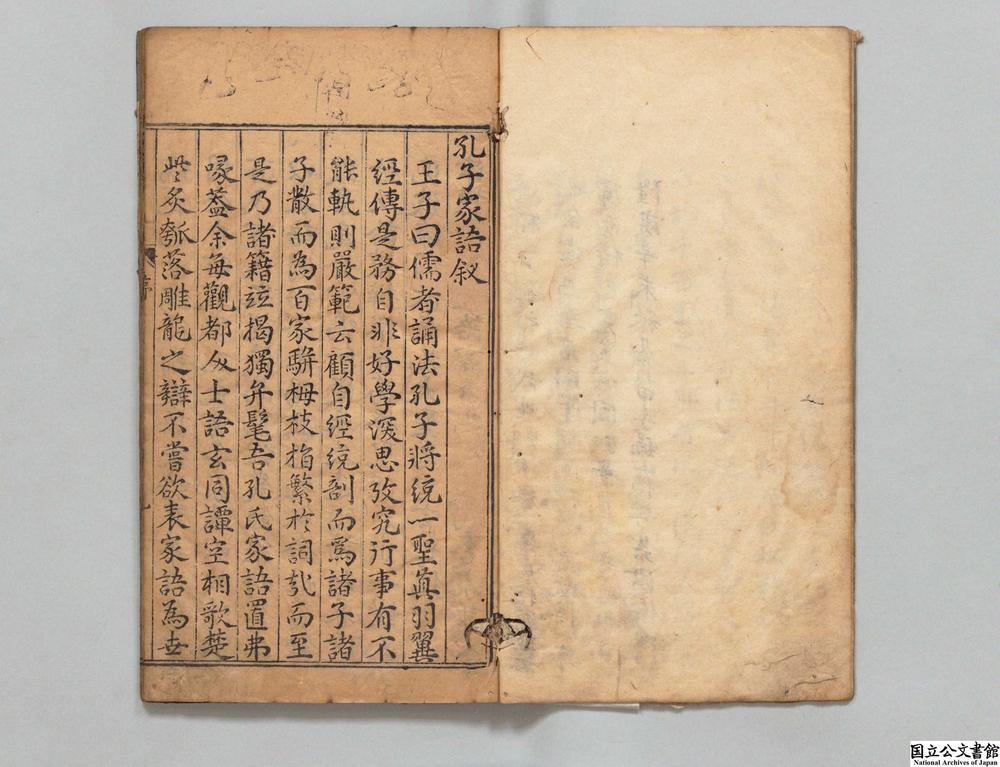 孔子家語叙
王子曰儒者誦法孔子將統一聖眞羽翼
經傳是務自非好學湥思攷究行事有不
能執則嚴範云顧自經統剖而爲諸子諸
子散而為百家駢栂枝指繁於詞㐳而至
是乃諸籍竝揭獨弁髦吾孔氏家語置弗
喙葢余每觀都人士語玄同譚空相歌楚
些炙瓠落雕龍之辯不嘗欲表家語為世
序
国立公文書館
National Archives of Japan